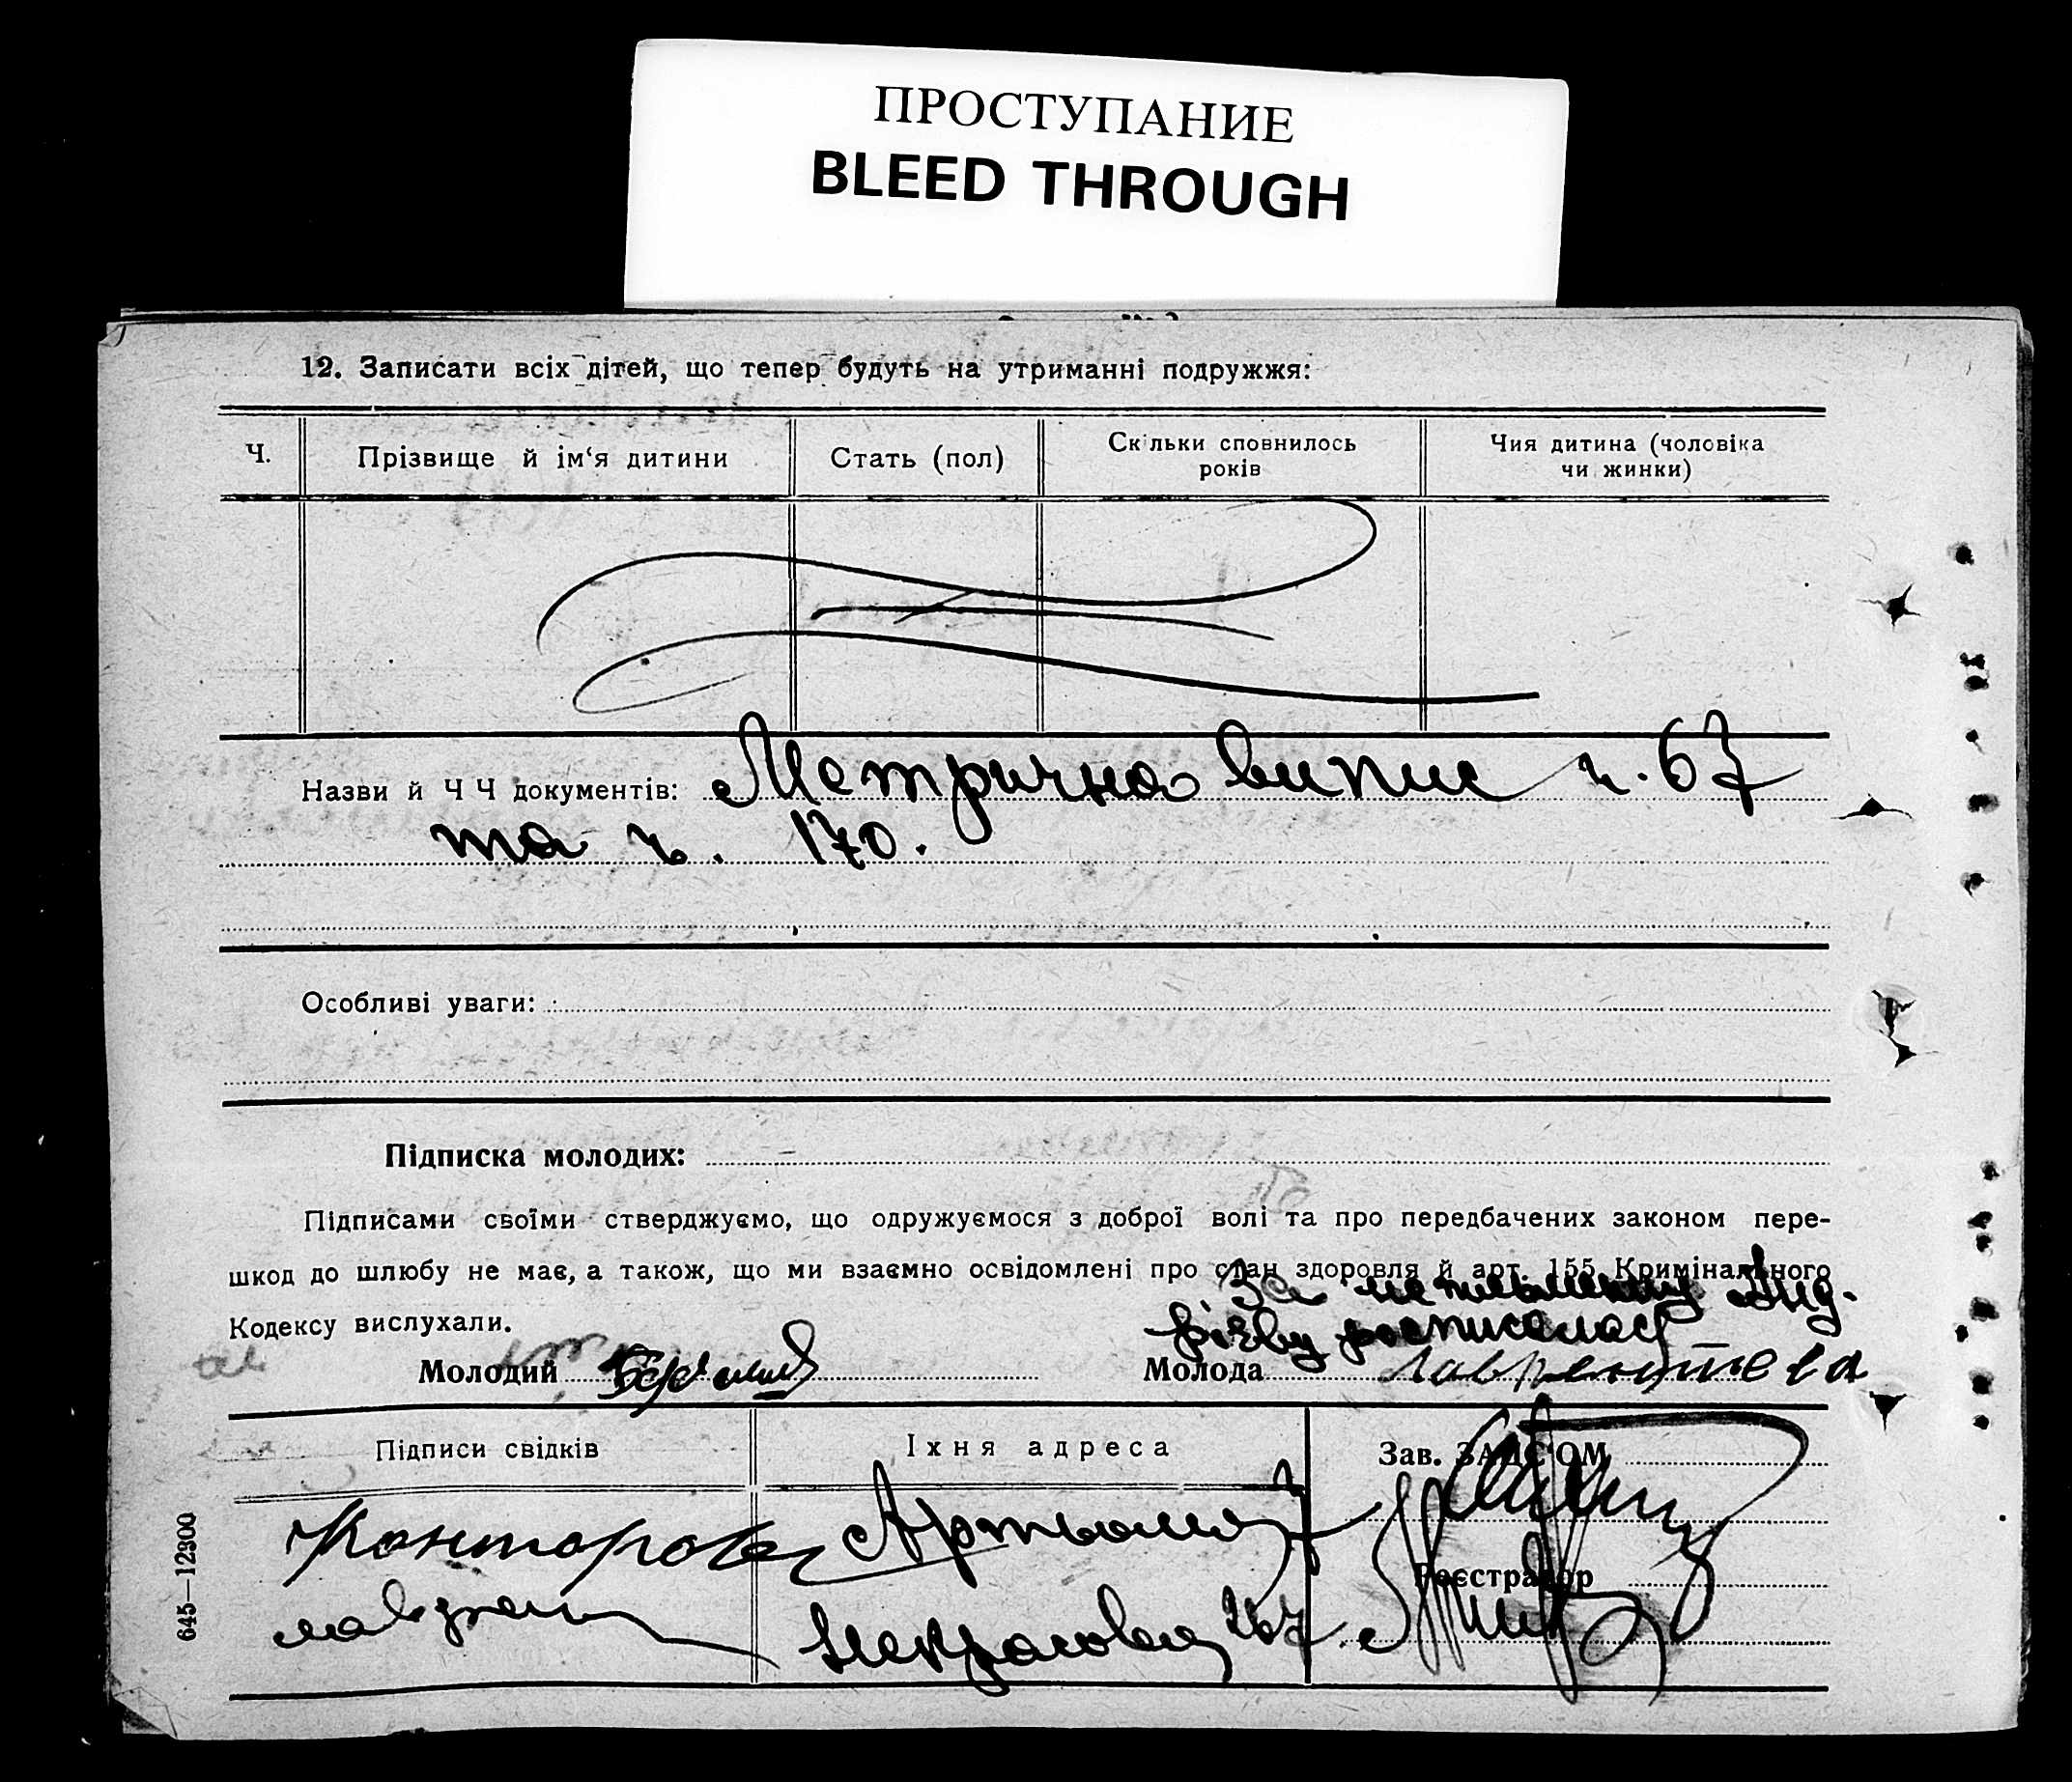 ПРОСТУПАНИЕ
BLEED THROUGH
12. Записати всіх дітей, що тепер будуть на утриманні подружжя:
Ч.
Прізвище й ім‘я дитини
Стать (пол)
Скільки сповнилось
років
Чия дитина (чоловіка
чи жинки)
Назви й Ч Ч документів: Метрична випис ч. 67
та ч. 170.
Особливі уваги:
Підписка молодих:
Підписами своїми стверджуємо, що одружуємося з доброї волі та про передбачених законом пере-
шкод до шлюбу не має, а також, що ми взаємно освідомлені про стан здоровля й арт. 155 Кримінального
Кодексу вислухали.
За неписьменну Анд-
рієву росписалася
Молодий
Молода Лаврентьева
Підписи свідків
Їхня адреса
Зав. ЗАГС'ОМ
Реєстратор
645—12300